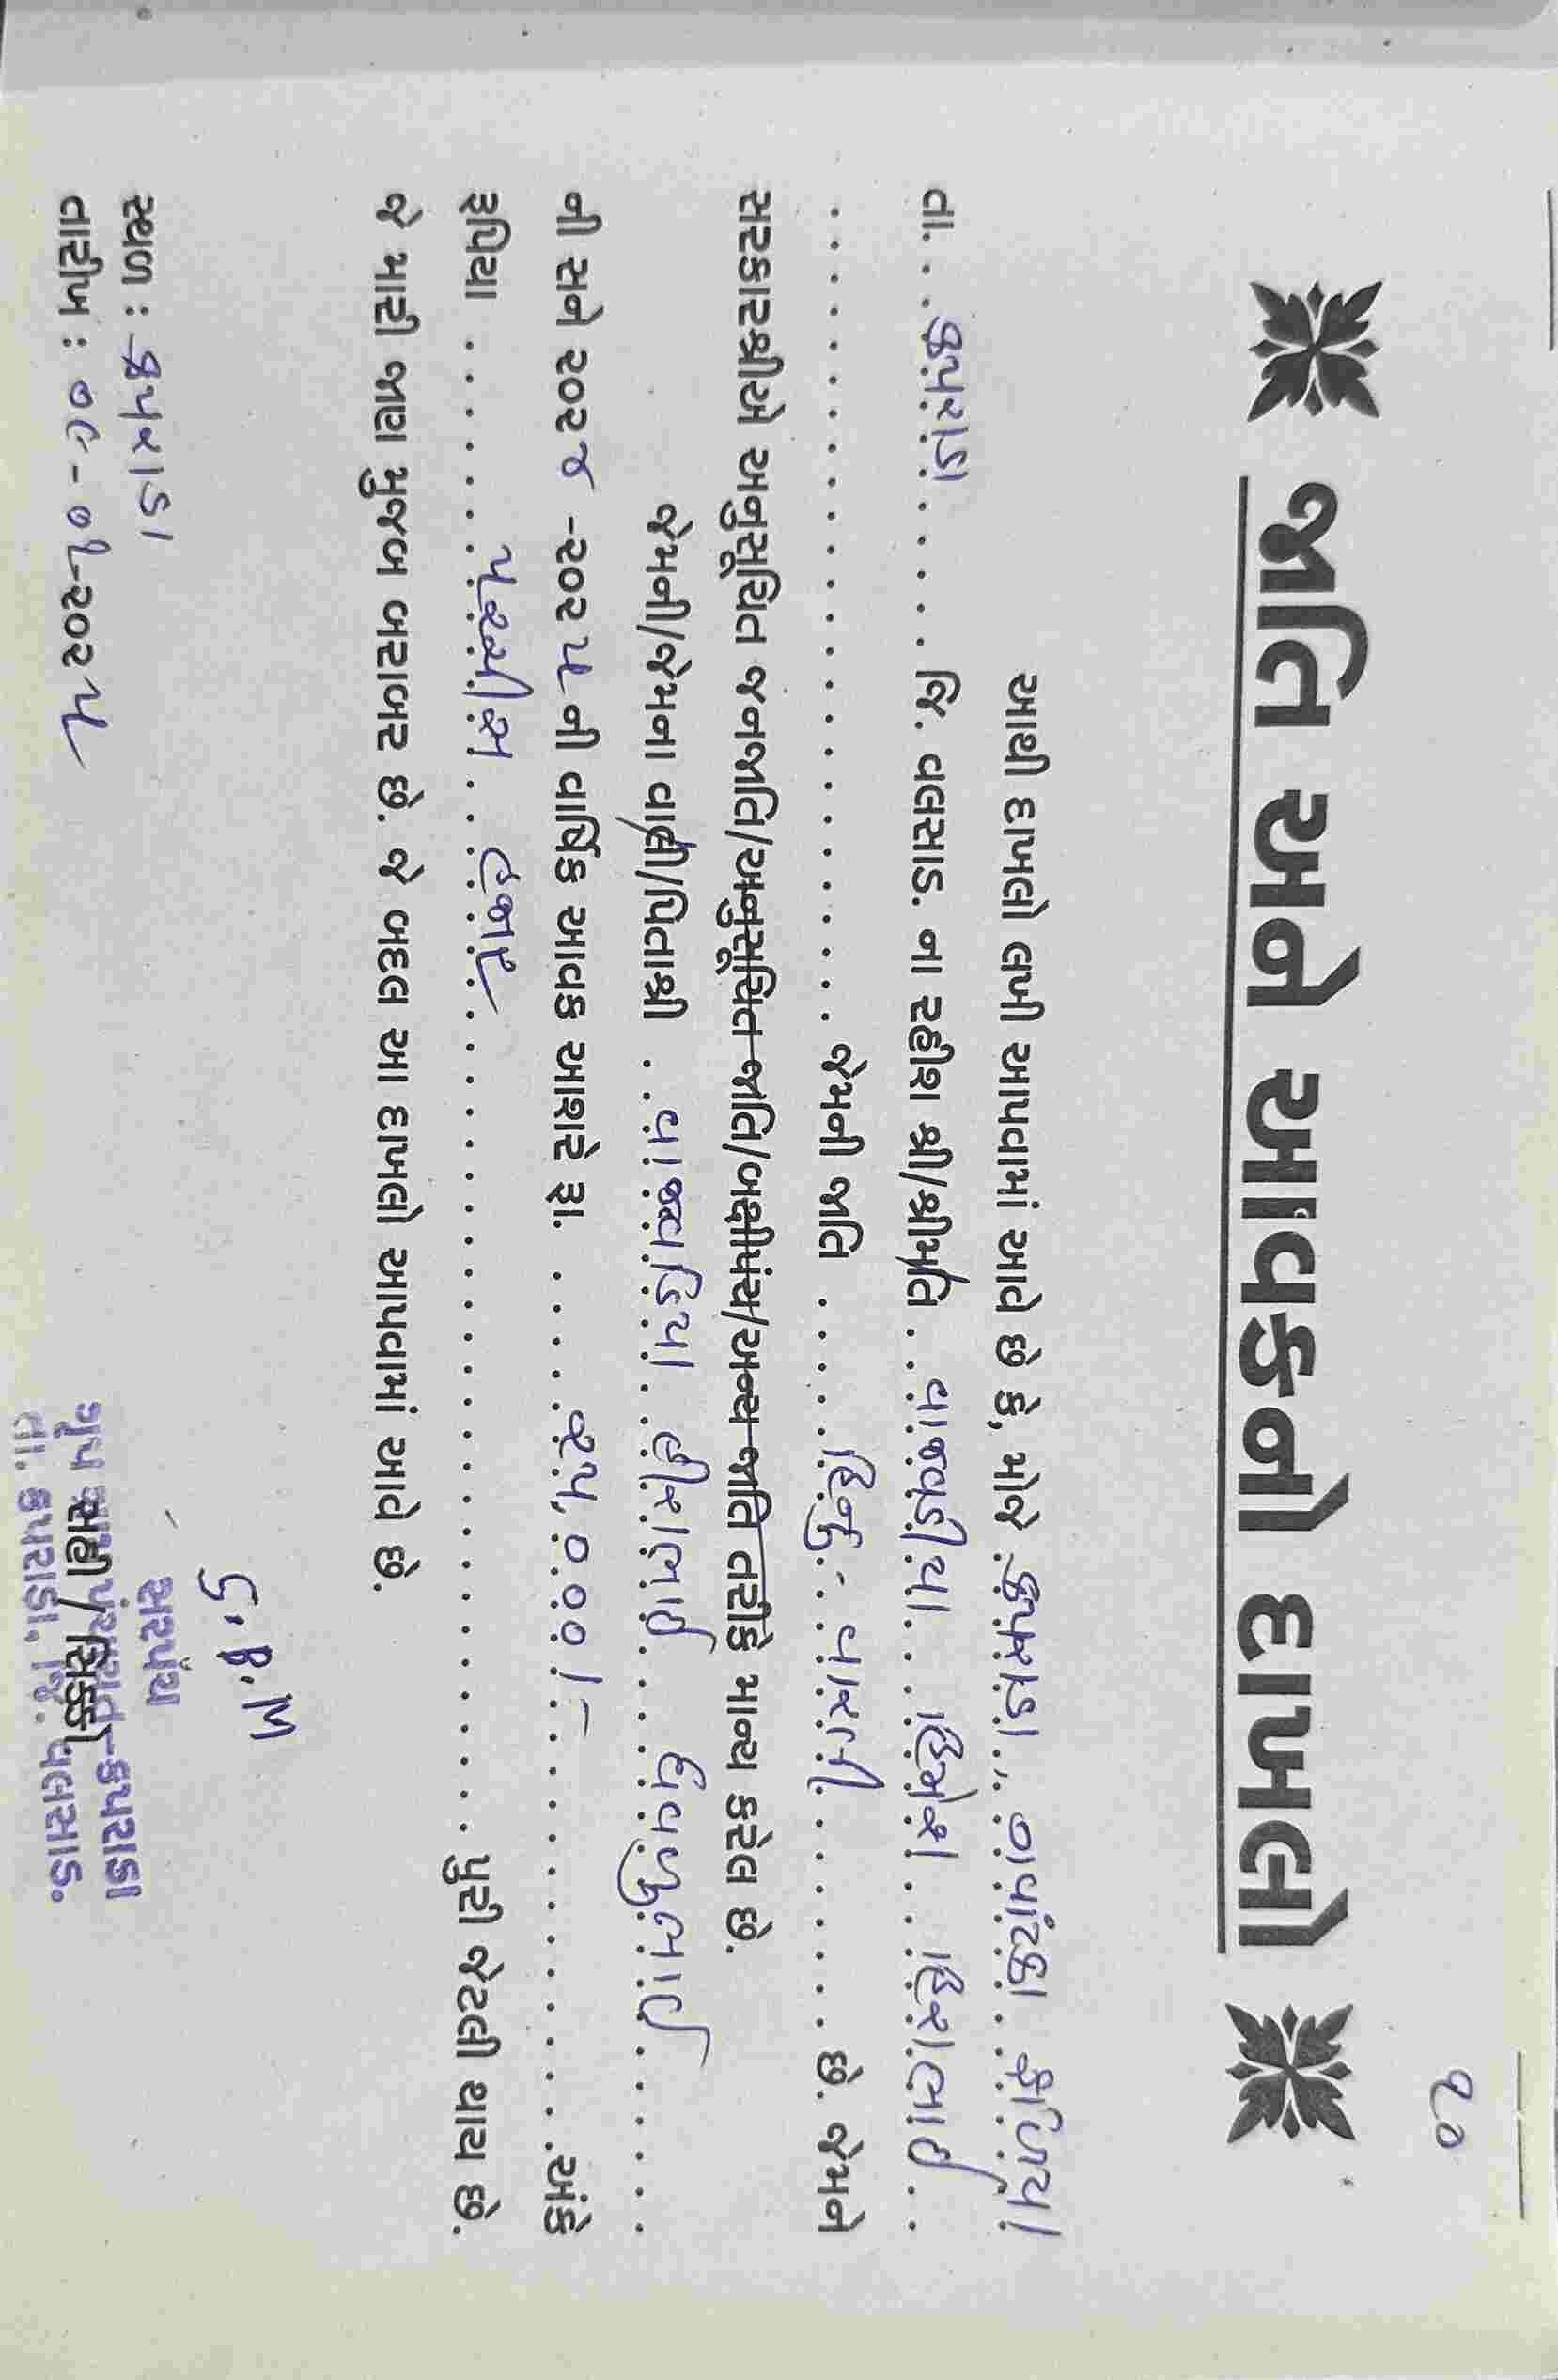 ૧૦
જાતિ અને આવકનો દાખલો
આથી દાખલો લખી આપવામાં આવે છે કે, મોજે કપરાડા
તા. કપરાડા જિ. વલસાડ. ના રહીશ શ્રી/શ્રીમતિ હિરાભાઈ
જેમની જાતિ હિન્દુ - વારલી છે. જેમને
સરકારશ્રીએ અનુસૂચિત જનજાતિ/અનુસૂચિત જાતિ/બક્ષીપંચ/અન્ય જાતિ તરીકે માન્ય કરેલ છે.
જેમની/જેમના વાલી/પિતાશ્રી હીરાભાઈ
ની સને ૨૦૨૪ -૨૦૨૫ ની વાર્ષિક આવક આશરે રૂા. ૨૫,૦૦૦/- અંકે
રૂપિયા પચ્ચીસ હજાર પુરી જેટલી થાય છે.
જે મારી જાણ મુજબ બરાબર છે. જે બદલ આ દાખલો આપવામાં આવે છે.
સ્થળ : કપરાડા
તારીખ : ૦૮-૦૨-૨૦૨૫
G.B.M
સરપંચ
ગ્રુપ ગ્રામ પંચાયત-કપરાડા
સહી/સિક્કો
તા. કપરાડા. જિ. વલસાડ.